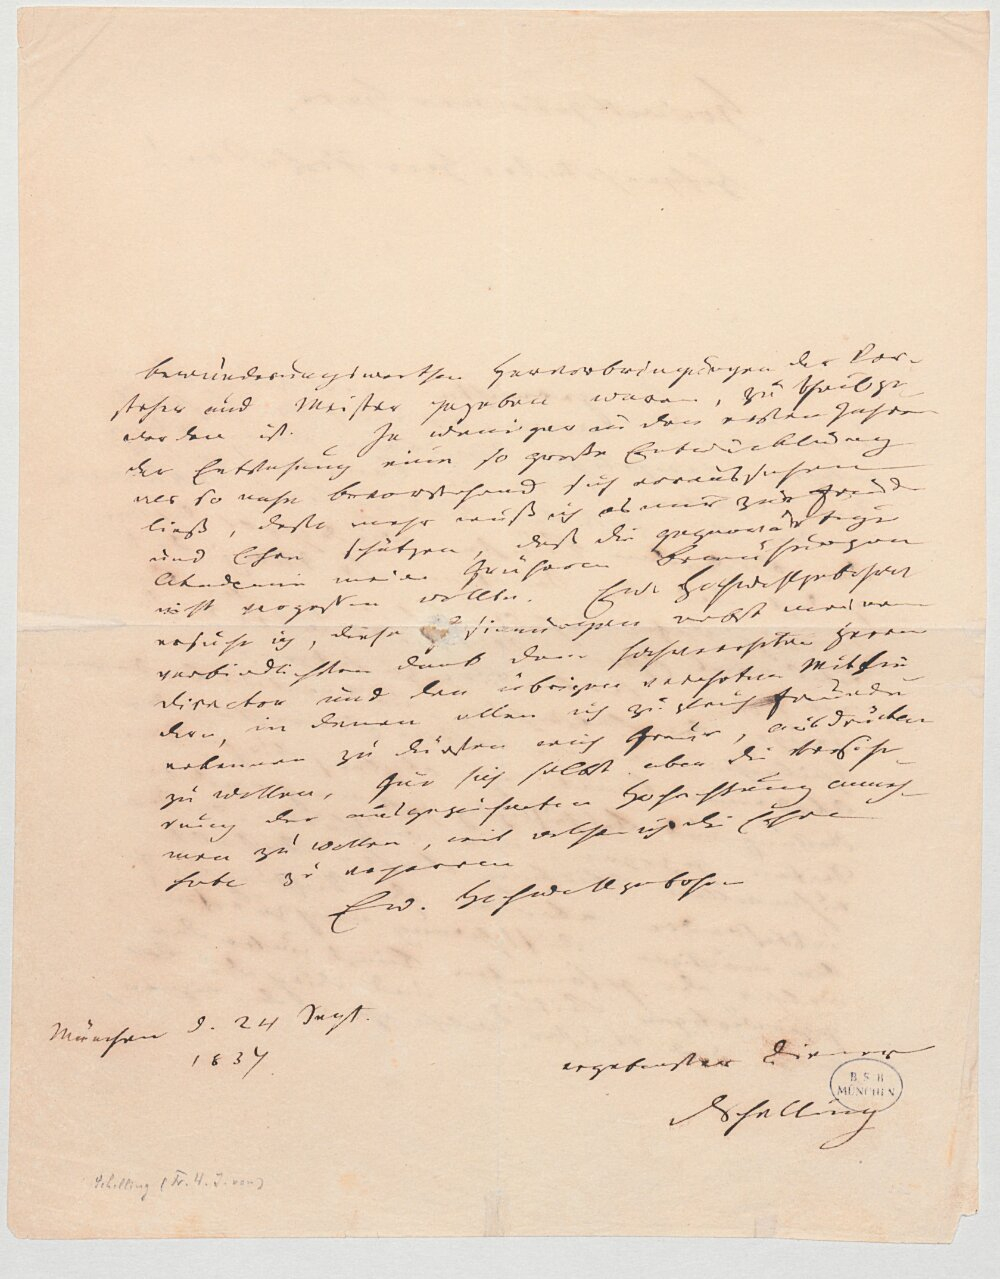 bewunderungswerthen Hervorbringungen der Vor-
steher und Meister gegeben waren, zu theil ge-
worden ist. Je weniger in den ersten Jahren
der Entstehung eine so große Entwicklung
als so nahe bevorstehend sich voraussehen
ließ, desto mehr muß ich es mir zur Freude
und Ehre schätzen, daß die gegenwärtige
Akademie meine früheren Bemühungen
nicht vergessen wollte. Ew. Hochwohlgeboren
ersuche ich, diese Gesinnungen nebst meinem
verbindlichsten Dank dem hochverehrten Herrn
Director und den übrigen verehrten Mitglie
dern, in denen allen ich zugleich Freunde
erkennen zu dürfen mich freue, ausdrücken
zu wollen, für sich selbst aber die Versiche-
rung der ausgezeichneten Hochachtung anneh-
men zu wollen, mit welcher ich die Ehre
habe zu verharren
Ew. Hochwohlgeboren
München d. 24 Sept.
1837
ergebenster Diener
Schelling
B S B
MÜNCHEN
Schelling (Fr. W. J. von)